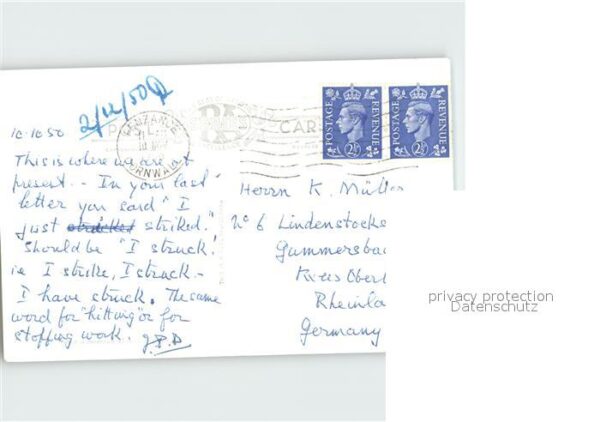 2/12/50
10.10.50
PENZANCE
CORNWALL
CAR
POSTAGE REVENUE 2½
POSTAGE REVENUE 2½
This is where we are at
present. - In your last
letter you said "I
just striked."
Should be "I struck."
ie I strike, I struck -
I have struck. The same
word for "hitting" or for
stopping work.
Herrn K. Mül
No 6 Lindenstocks
Gummersba
Kreis Ober
Rheinla
Germany
privacy protection
Datenschutz